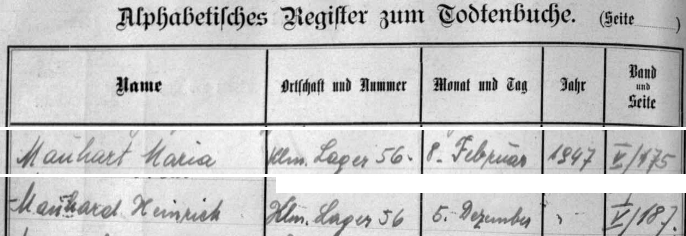 Alphabetisches Register zum Todtenbuche. (Seite )
Name Ortschaft und Nummer Monat und Tag Jahr Band und Seite
Mauhart Maria Hlm. Lager 56. 8. Februar 1947 V/175
Mauhard Heinrich Hlm. Lager 56 5. Dezember " V/187.